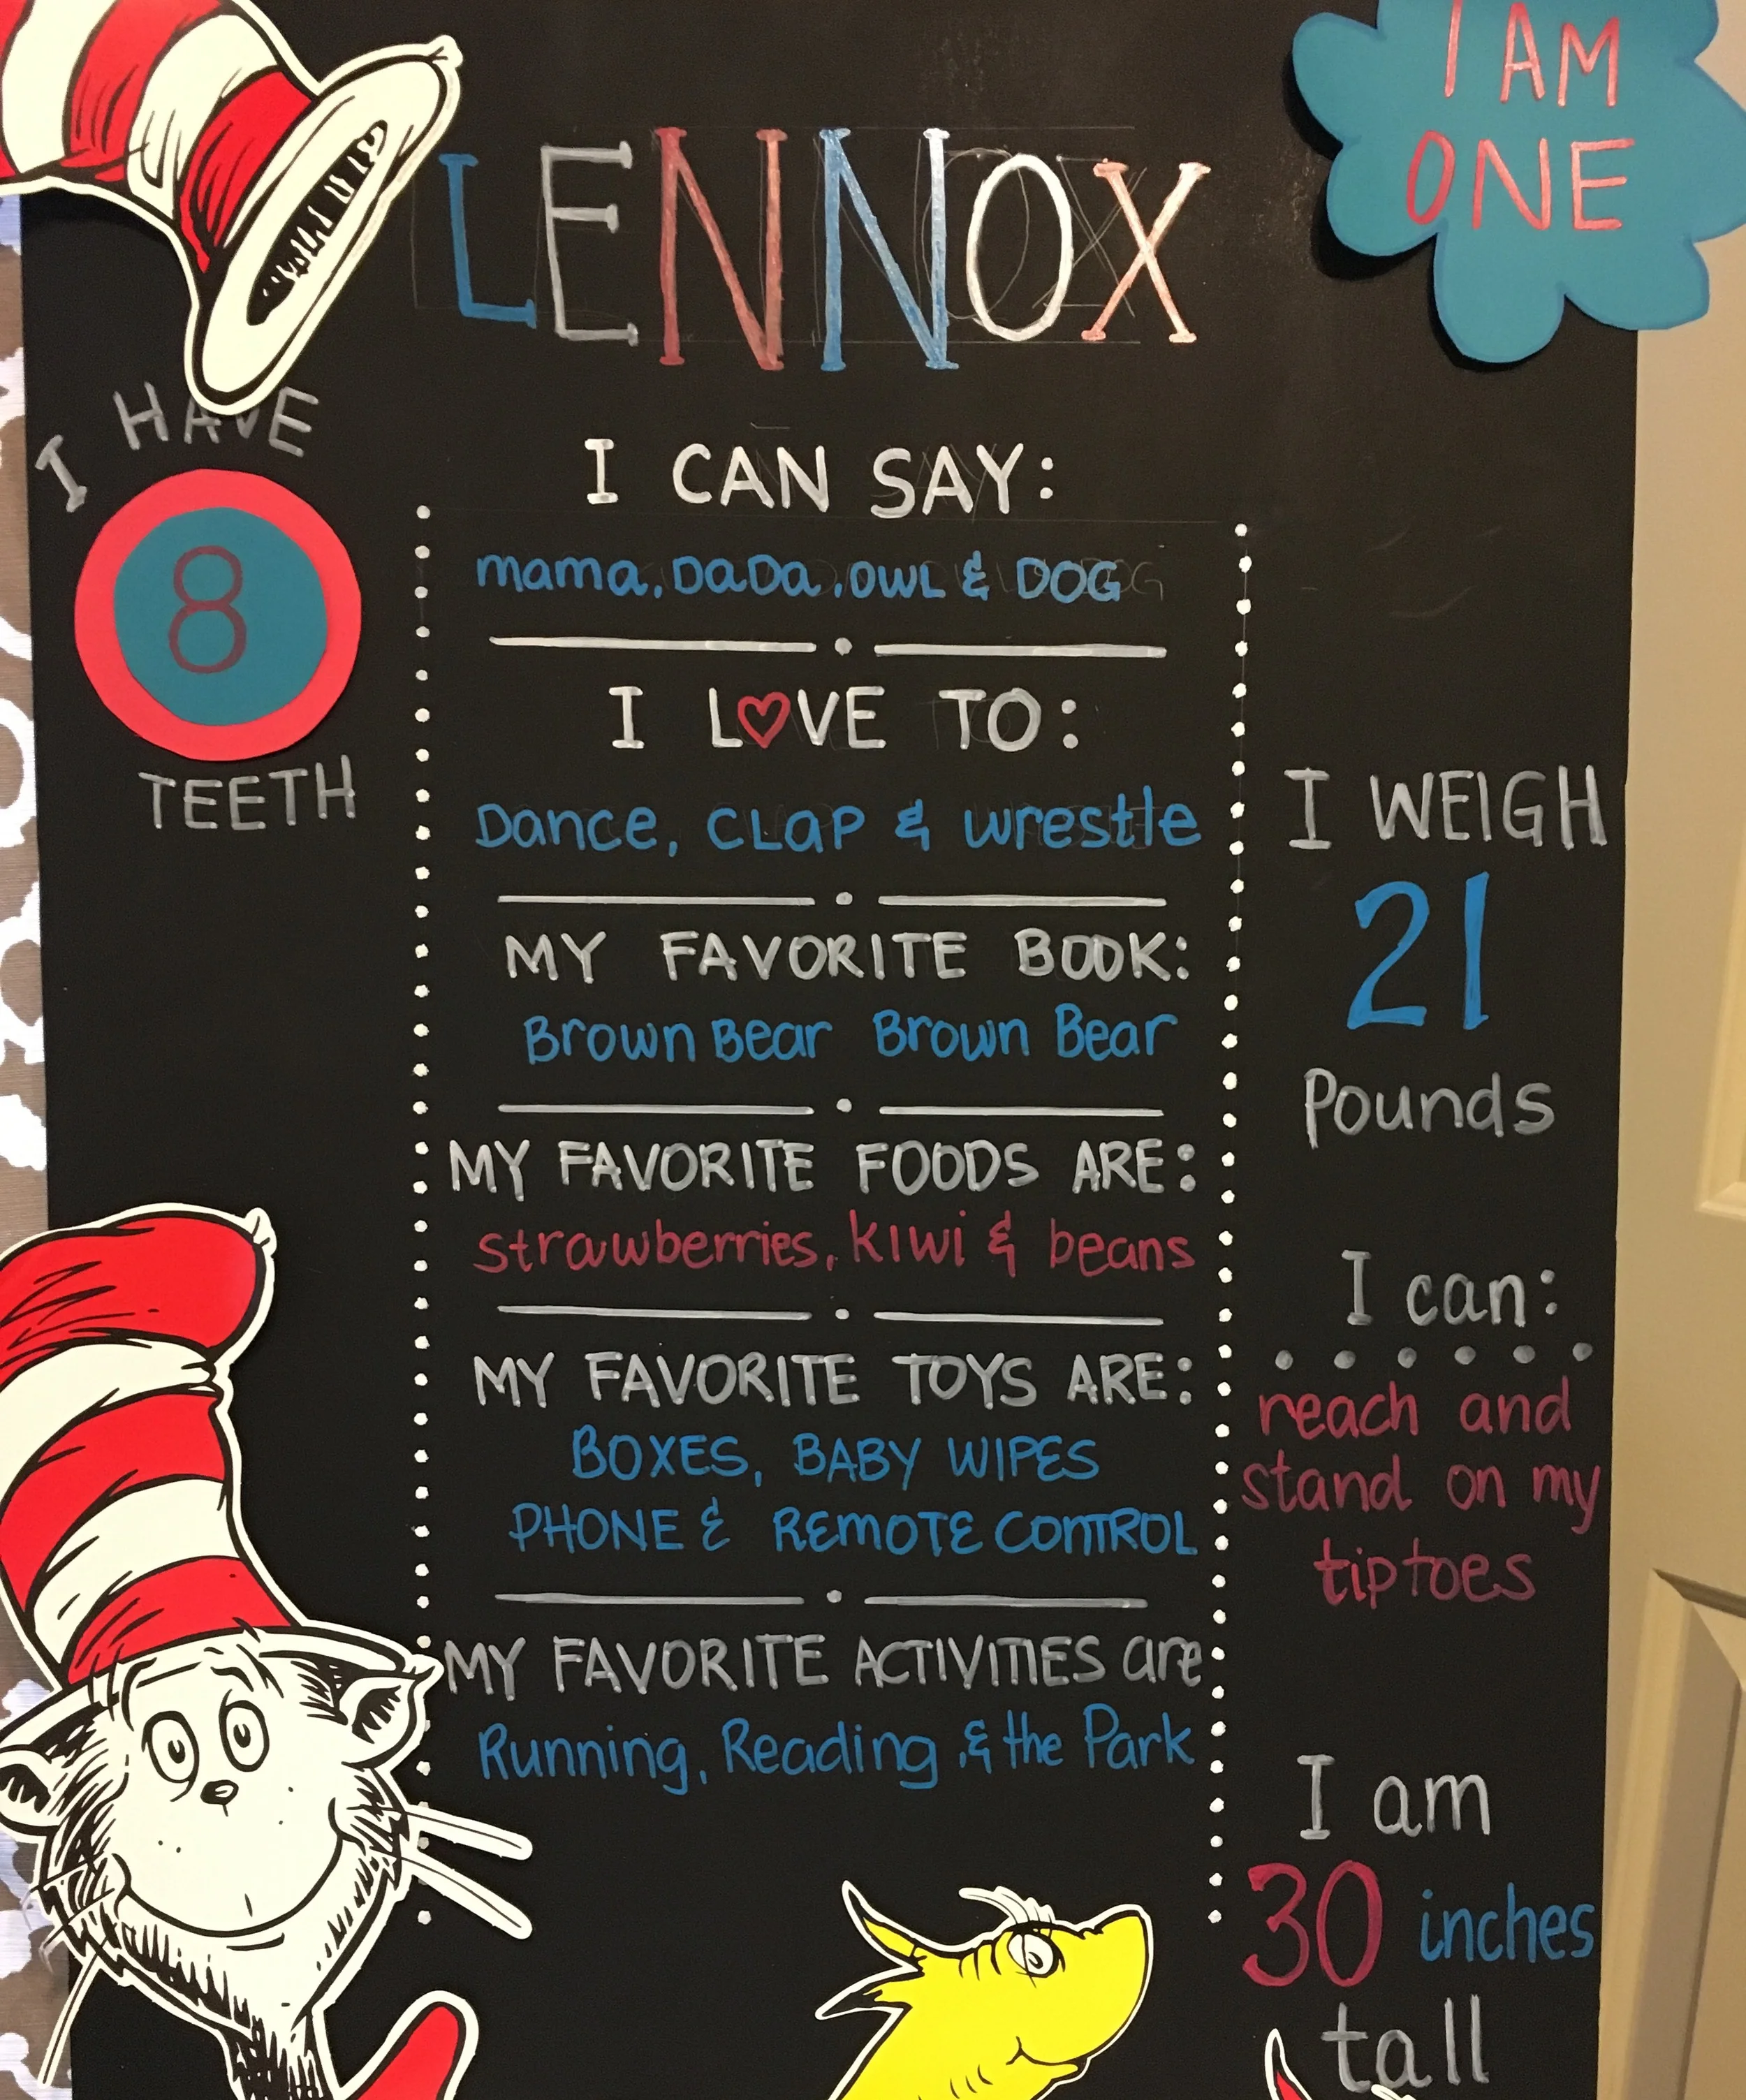 I AM
ONE
LENNOX
I HAVE
8
TEETH
I CAN SAY:
mama, DaDa, OWL & DOG
I L♡VE TO:
Dance, CLAP & wrestle
MY FAVORITE BOOK:
Brown Bear Brown Bear
MY FAVORITE FOODS ARE:
strawberries, kiwi & beans
MY FAVORITE TOYS ARE:
BOXES, BABY WIPES
PHONE & REMOTE CONTROL
MY FAVORITE ACTIVITIES are
Running, Reading, & the Park
I WEIGH
21
Pounds
I can:
reach and
stand on my
tiptoes
I am
30 inches
tall